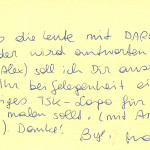 die Leute mit DARC
der wird antworten
Alex) soll ich Dir aus
Ihr bei Gelegenheit ei
ges TSK-Logo für
malen sollt. (mit A
). Danke!